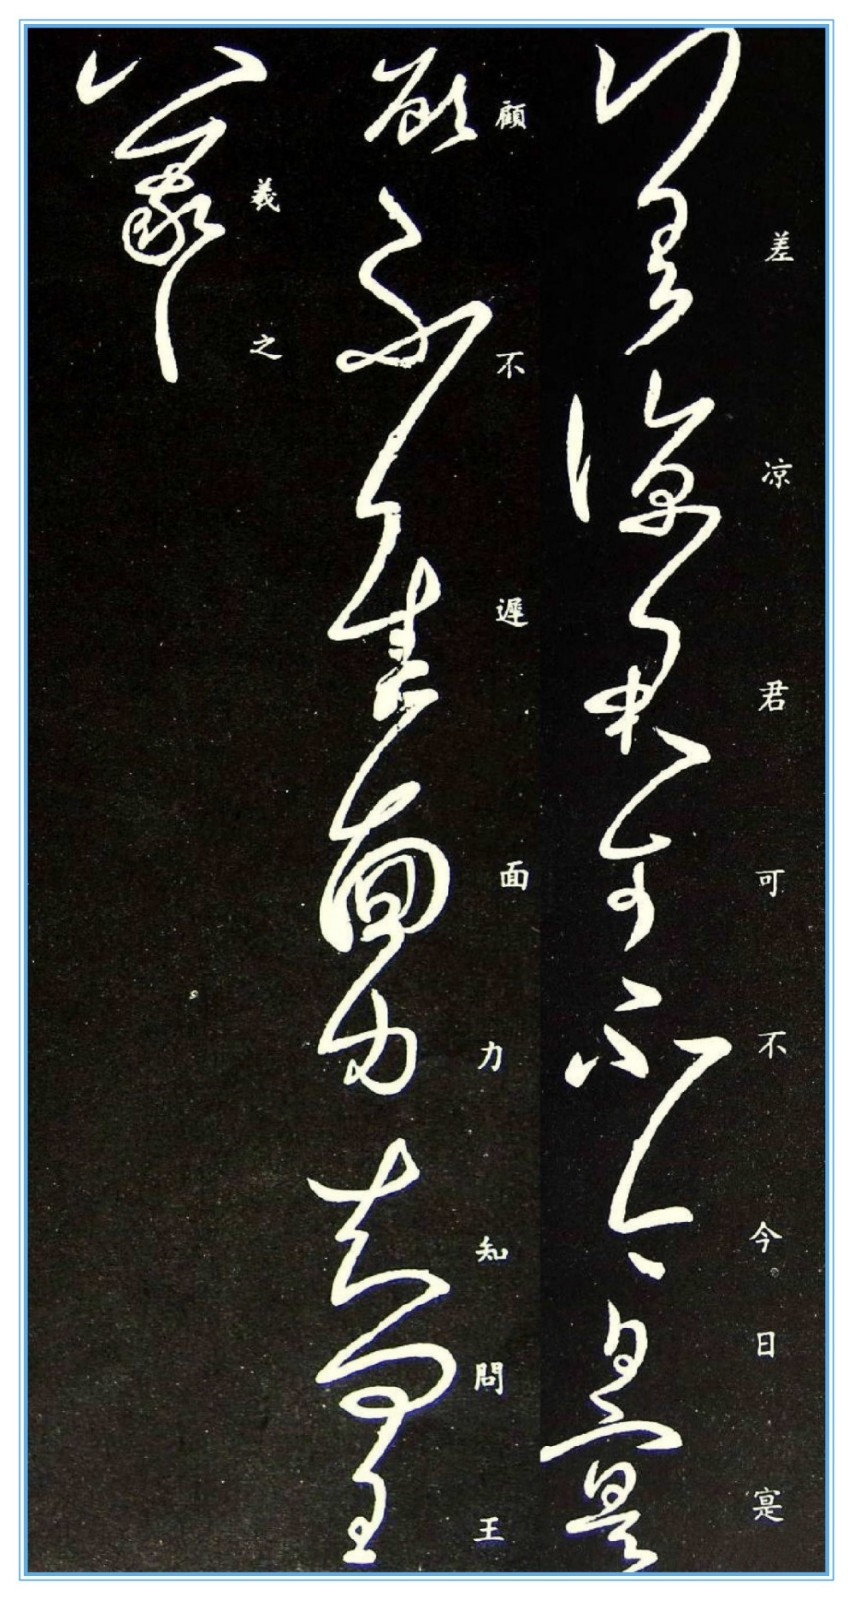 差凉君可不今日寔
顧不遲面力知問王
羲之